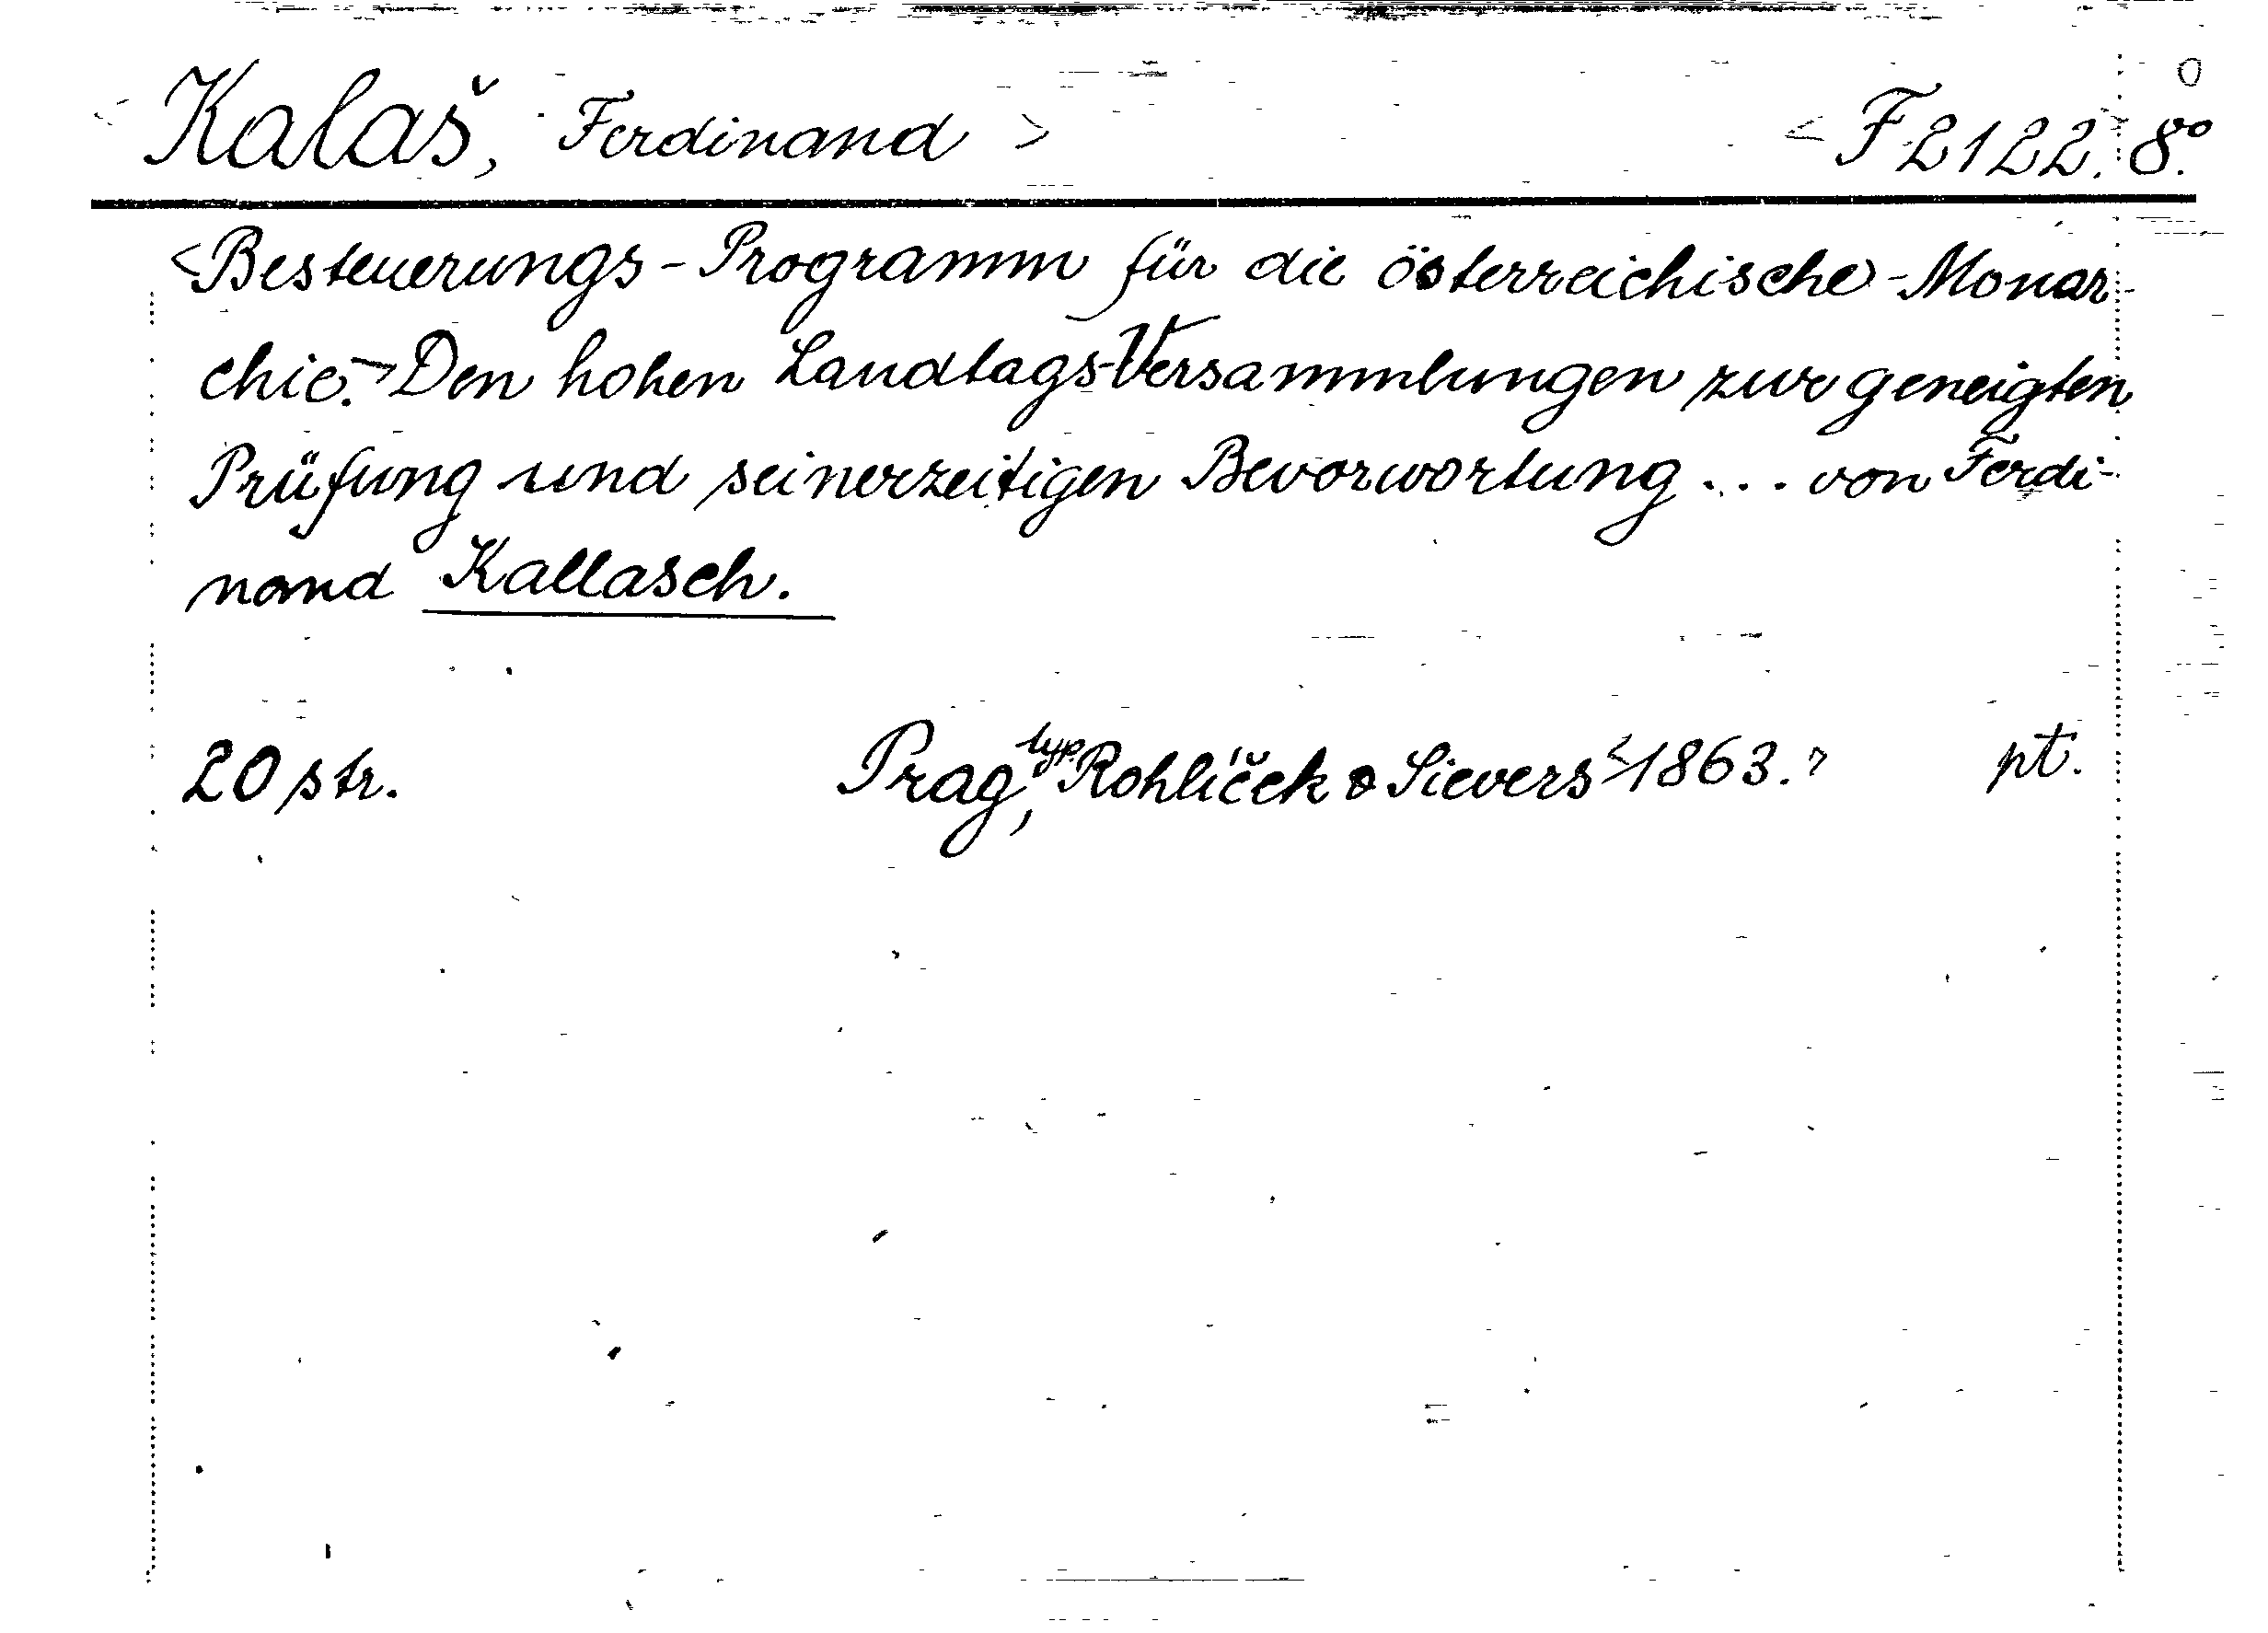 <Kalaš, Ferdinand> <F 2122.> 8°.
<Besteuerungs-Programm für die österreichische-Monar-
chie.> Den hohen Landtags-Versammlungen zur geneigten
Prüfung und seinerzeitigen Bevorwortung... von Ferdi-
nand Kallasch.
20 str. Prag, typ. Rohlíček & Sievers <1863.> pt.